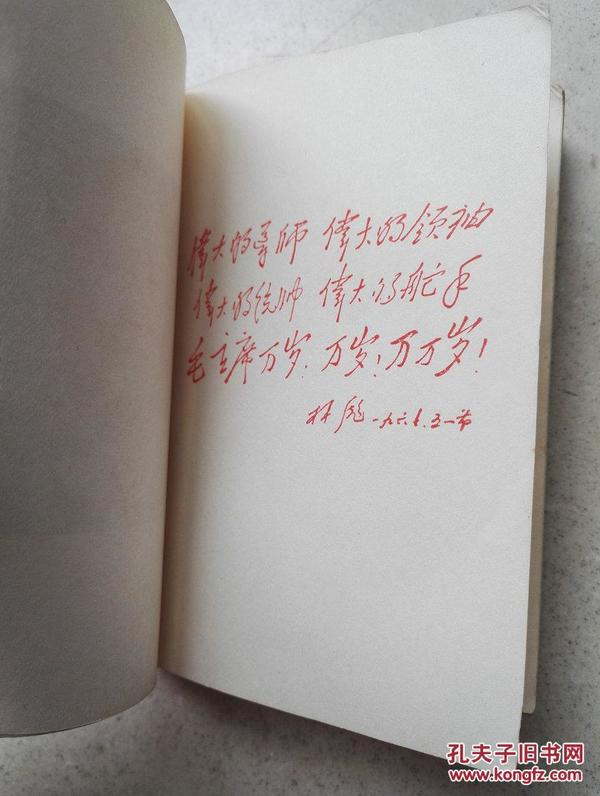 偉大的导师 偉大的领袖
偉大的统帅 偉大的舵手
毛主席万岁！万岁！万万岁！
林彪 一九六七.五一节
孔夫子旧书网
www.kongfz.com